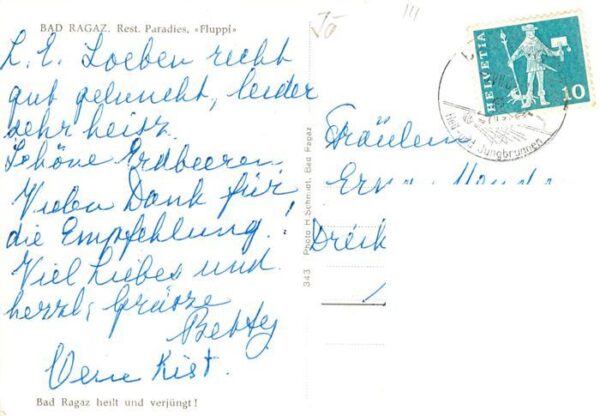 BAD RAGAZ. Rest. Paradies, «Fluppi»
L. E. Soeben recht
gut geluncht, leider
sehr heisz.
Schöne Erdbeeren.
Vielen Dank für
die Empfehlung!
Viel Liebes und
herzl. Grüsze
Betty
Bad Ragaz heilt und verjüngt!
343 Photo H Schmidt, Bad Ragaz
Fräulein
HELVETIA
10
Jungbrunnen